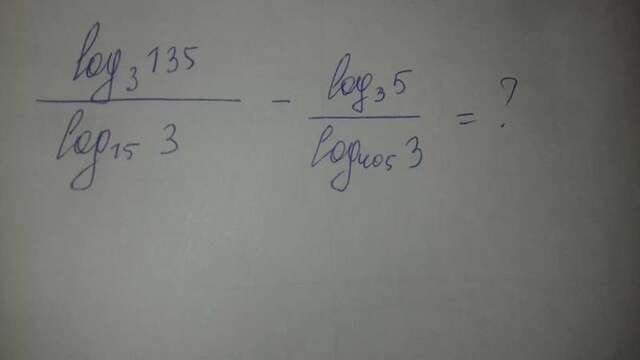 log₃ 135 / log₁₅ 3 - log₃ 5 / log₄₀₅ 3 = ?